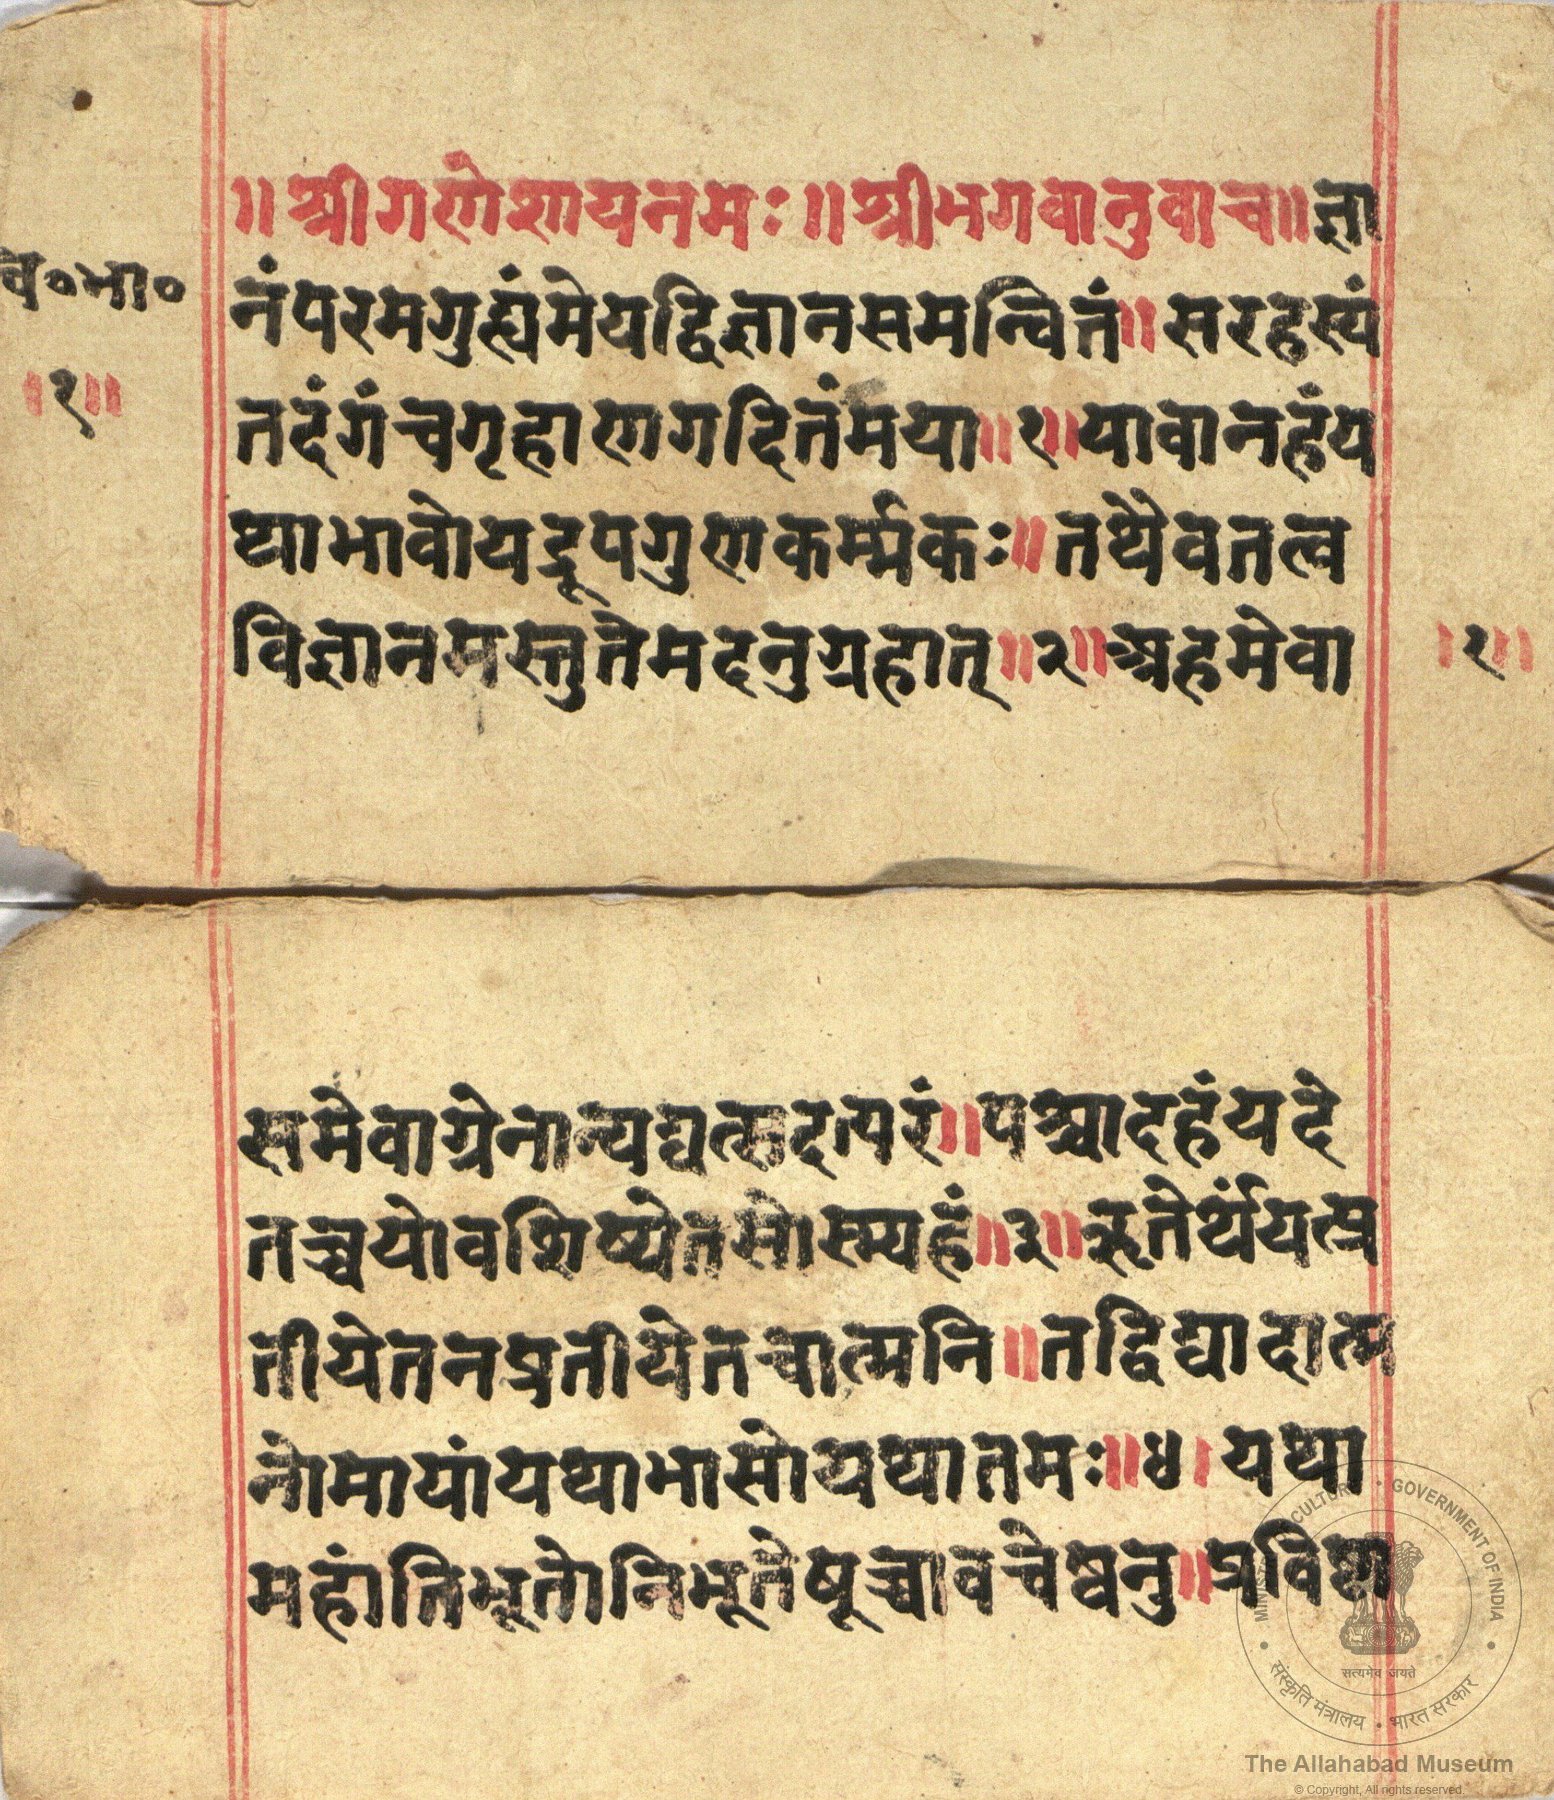 ॥ श्रीगणेशायनमः ॥ श्रीभगवानुवाच॥ ज्ञा
च॰भा॰
नंपरमगुह्यंमेयद्विज्ञानसमन्वितं॥ सरहस्यं
।१॥
तदंगंचगृहाणगदितंमया॥१॥यावानहंय
थाभावोयद्रूपगुणकर्म्मकः॥ तथैवतत्व
विज्ञानमस्तुतेमदनुग्रहात्॥२॥अहमेवा
।१॥
समेवाग्रेनान्यद्यत्सदत्परं॥पश्चादहंयदे
तच्चयोवशिष्येतसोस्म्यहं॥३॥ऋतेर्थंयत्प्र
तीयेतनप्रतीयेतचात्मनि॥तद्विद्यादात्म
नोमायांयथाभासोयथातमः॥४। यथा
महांतिभूतोनिभूतेषूच्चावचेष्वनु॥प्रविष्टा
MINISTRY OF CULTURE · GOVERNMENT OF INDIA
सत्यमेव जयते
संस्कृति मंत्रालय · भारत सरकार
The Allahabad Museum
© Copyright, All rights reserved.